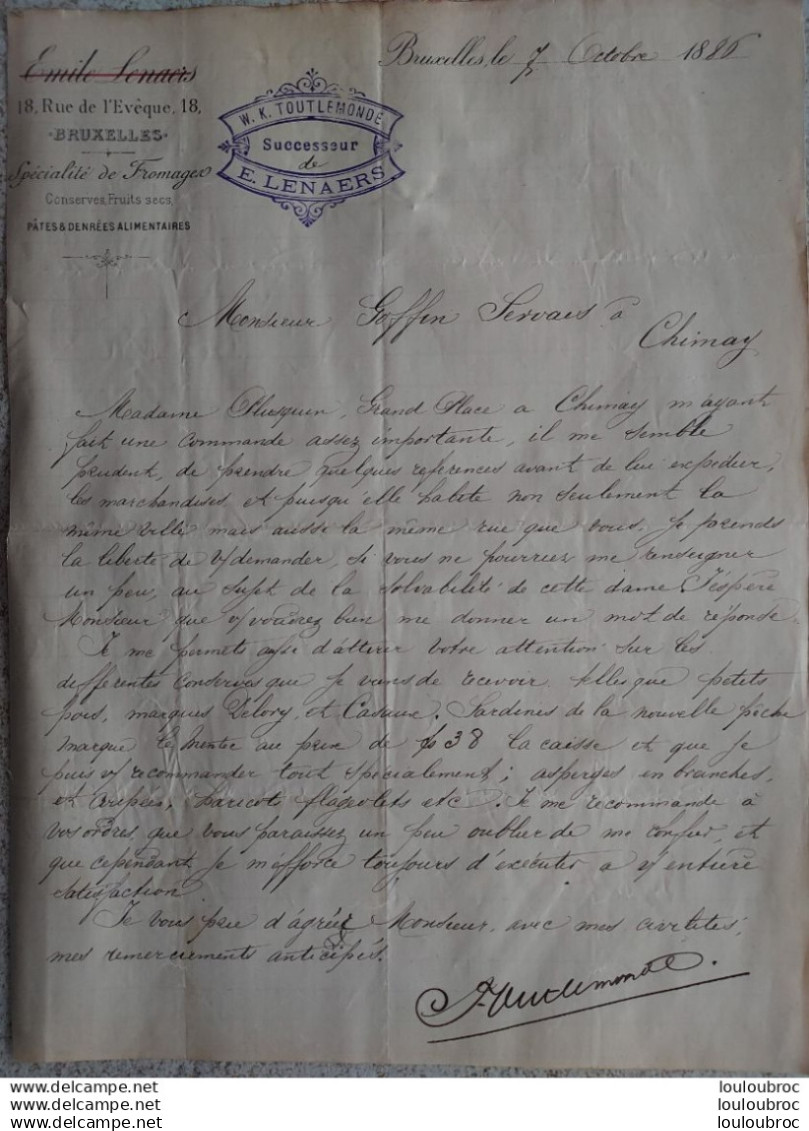 Emile Lenaers
18, Rue de l'Evêque, 18,
BRUXELLES
Spécialité de Fromages
Conserves, Fruits secs,
PÂTES & DENRÉES ALIMENTAIRES
W. K. TOUTLEMONDE
Successeur
de
E. LENAERS
Bruxelles, le 7 Octobre 1886
Monsieur Goffin Servais à
Chimay
Madame Grand Place a Chimay m'ayant
fait une commande assez importante, il me semble
prudent, de prendre quelques references avant de lui expédier,
les marchandises, et puisqu'elle habite non seulement la
même ville mais aussi la même rue que vous. Je prends
la liberté de v/demander, si vous ne pourriez me renseigner
un peu, au sujet de la solvabilité de cette dame. J'espère
Monsieur que v/voudrez bien me donner un mot de réponse.
Je me permets aussi d'attirer votre attention sur les
differentes conserves que je viens de recevoir telles que petits
pois, marques Delory, et Casaux. Sardines de la nouvelle pêche
marque au prix de 38 la caisse et que je
puis v/ recommander tout spécialement; asperges en branches,
et coupées, haricots flageolets etc. Je me recommande à
vos ordres, que vous paraissez un peu oublier de me confier, et
que cependant je m'éfforce toujours d'exécuter a v/ entière
satisfaction.
Je vous prie d'agréer Monsieur, avec mes civilités,
mes remerciements anticipés.
Toutlemonde.
louloubroc
louloubroc
louloubroc
louloubroc
louloubroc
louloubroc